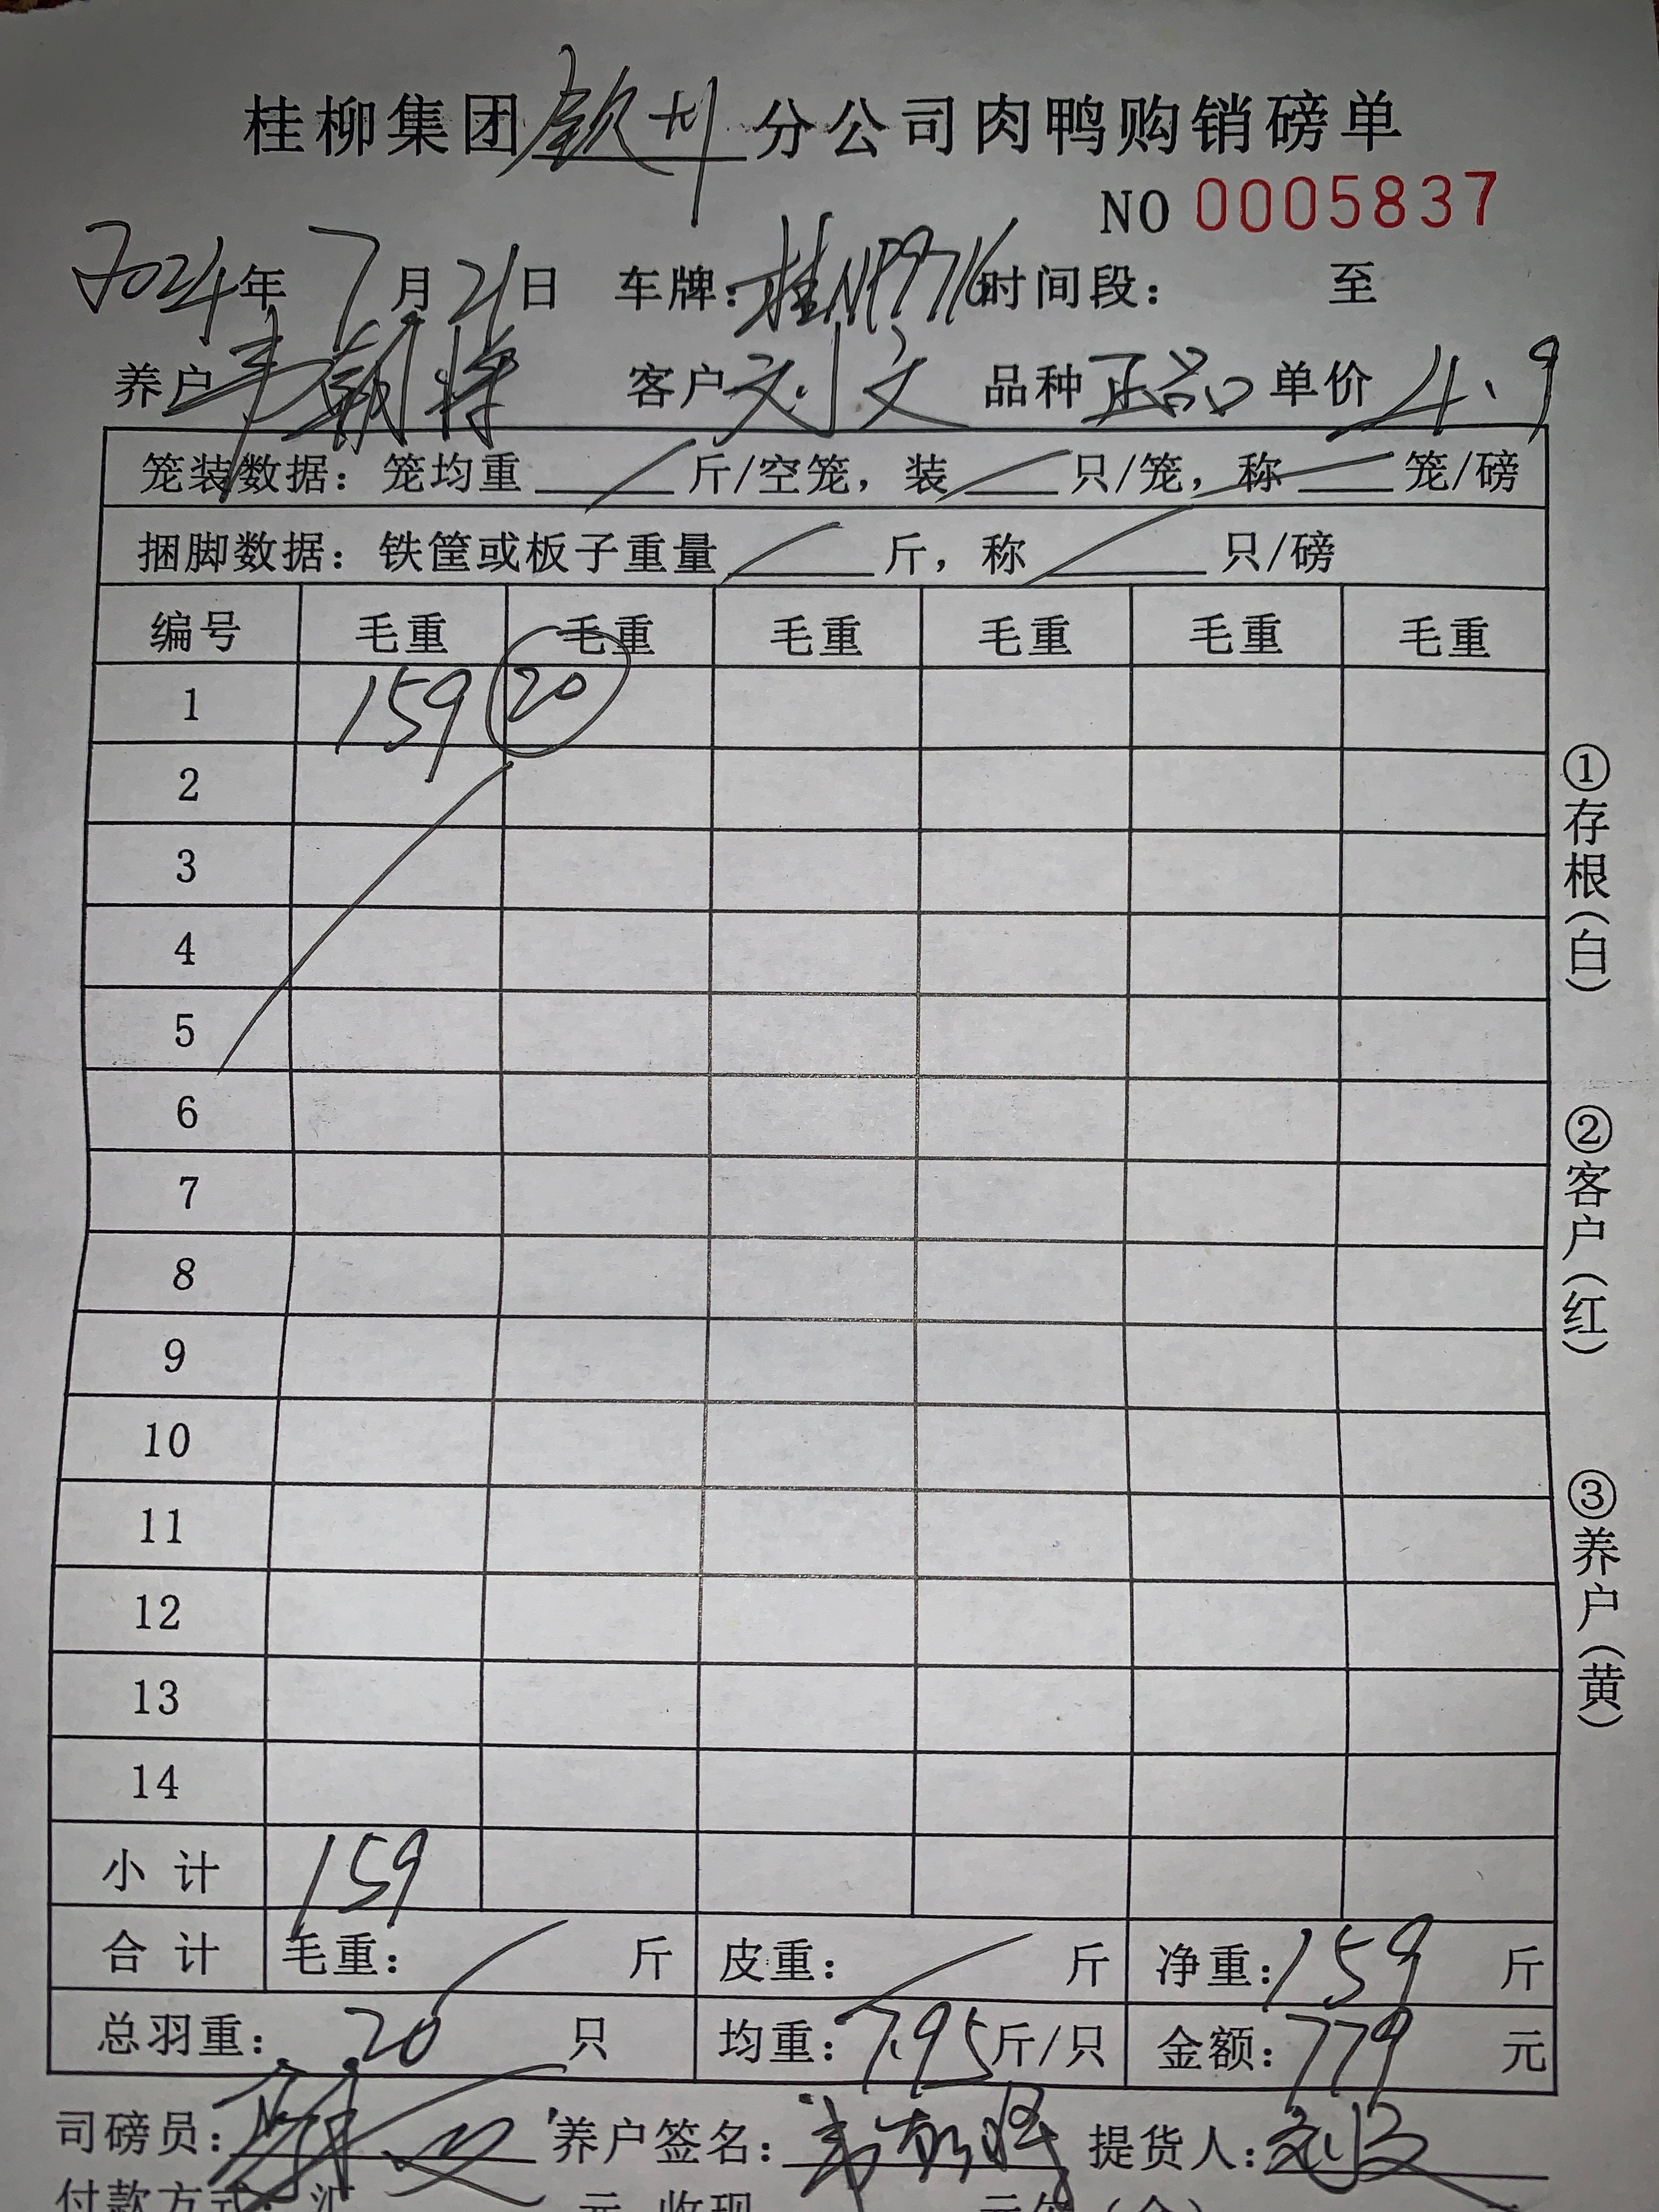 桂柳集团钦州分公司肉鸭购销磅单
NO 0005837
2024年7月21日 车牌:桂NP9716时间段: 至
养户韦朝将 客户刘文 品种正品 单价4.9
笼装数据:笼均重 斤/空笼,装 只/笼,称 笼/磅
捆脚数据:铁筐或板子重量 斤,称 只/磅
编号 毛重 毛重 毛重 毛重 毛重 毛重
1 159 20
2
3
4
5
6
7
8
9
10
11
12
13
14
小计 159
合计 毛重: 斤 皮重: 斤 净重:159 斤
总羽重: 20 只 均重:7.95斤/只 金额:779 元
司磅员: 养户签名:韦朝将 提货人:刘文
付款方式:汇 元 收现 元
①存根(白)
②客户(红)
③养户(黄)